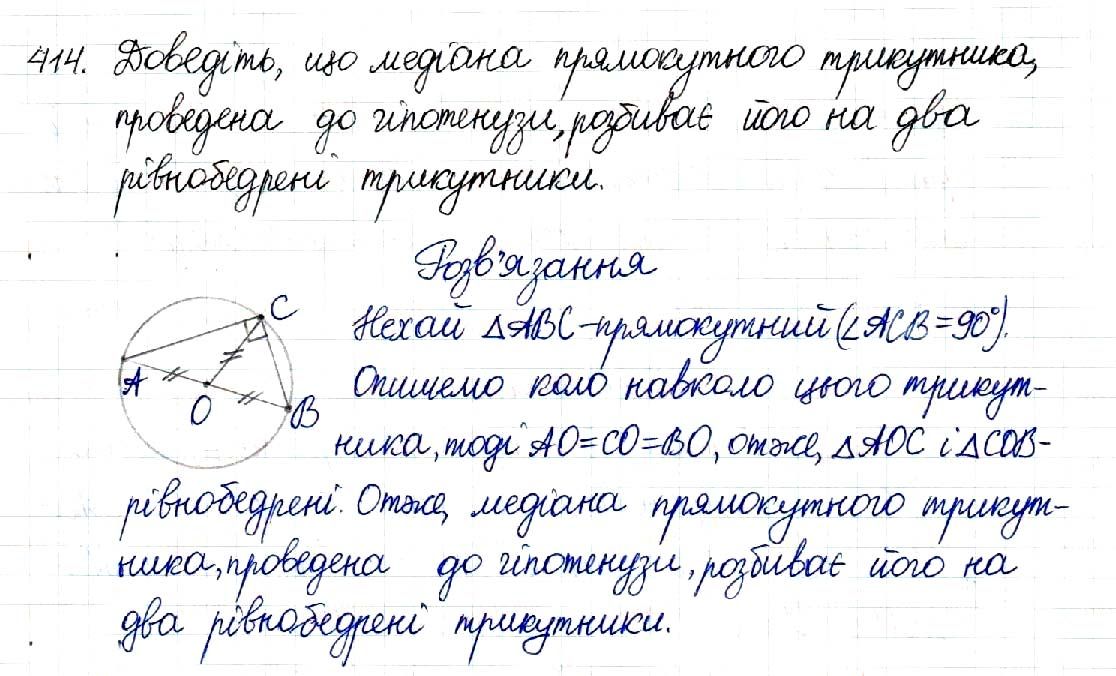 414. Доведіть, що медіана прямокутного трикутника,
проведена до гіпотенузи, розбиває його на два
рівнобедрені трикутники.
Розв'язання
C
A
O
B
Нехай △ABC-прямокутний (∠ACB=90°).
Опишемо коло навколо цього трикут-
ника, тоді AO=CO=BO, отже, △AOC і △COB-
рівнобедрені. Отже, медіана прямокутного трикут-
ника, проведена до гіпотенузи, розбиває його на
два рівнобедрені трикутники.